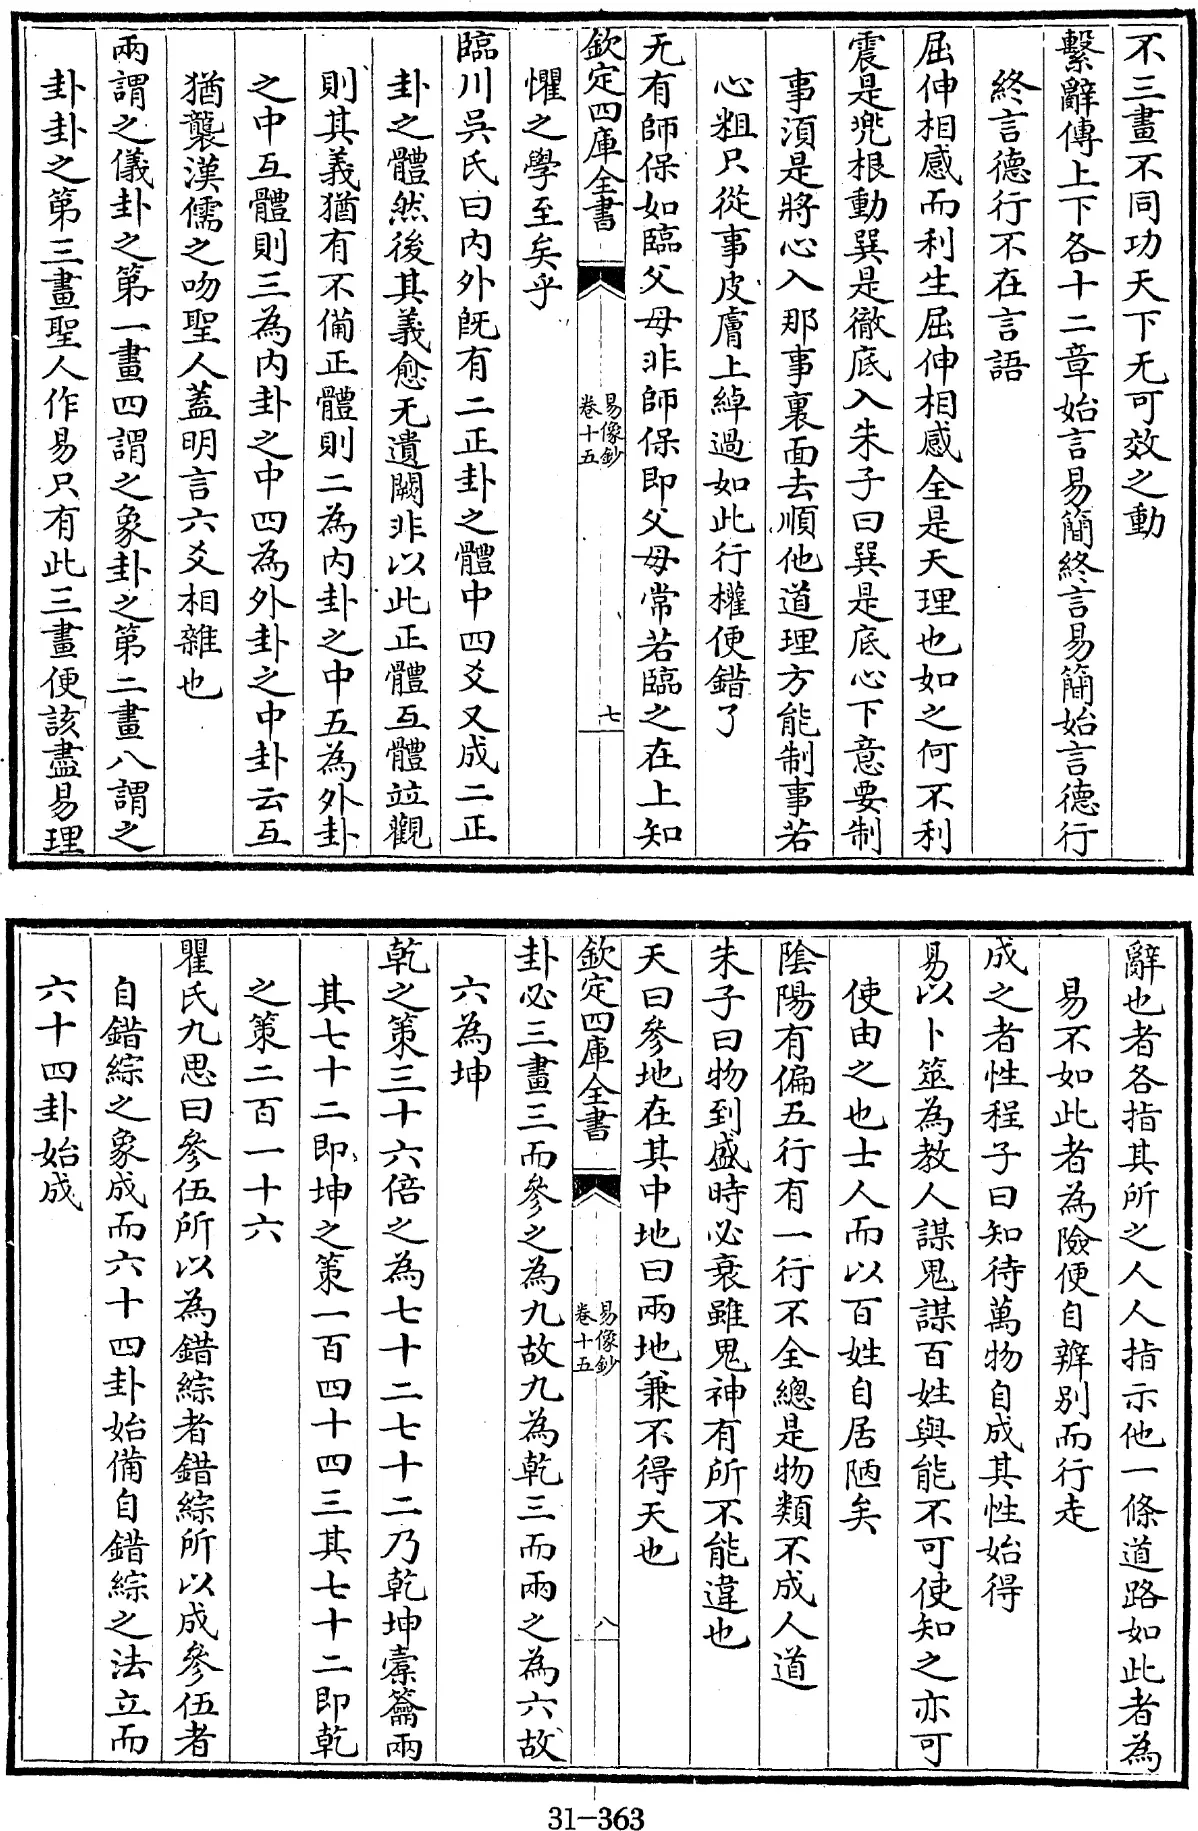 不三畫不同功天下无可效之動
繫辭傳上下各十二章始言易簡終言易簡始言德行
終言德行不在言語
屈伸相感而利生屈伸相感全是天理也如之何不利
震是兠根動巽是徹底入朱子曰巽是底心下意要制
事湏是將心入那事裏面去順他道理方能制事若
心粗只從事皮膚上綽過如此行權便錯了
无有師保如臨父母非師保即父母常若臨之在上知
欽定四庫全書
易像鈔
卷十五
七
懼之學至矣乎
臨川吳氏曰内外旣有二正卦之體中四爻又成二正
卦之體然後其義愈无遺闕非以此正體互體竝觀
則其義猶有不備正體則二為内卦之中五為外卦
之中互體則三為内卦之中四為外卦之中卦云互
猶襲漢儒之吻聖人蓋明言六爻相雜也
兩謂之儀卦之第一畫四謂之象卦之第二畫八謂之
卦卦之第三畫聖人作易只有此三畫便該盡易理
辭也者各指其所之人人指示他一條道路如此者為
易不如此者為險便自辨别而行走
成之者性程子曰知待萬物自成其性始得
易以卜筮為教人謀鬼謀百姓與能不可使知之亦可
使由之也士人而以百姓自居陋矣
陰陽有偏五行有一行不全總是物類不成人道
朱子曰物到盛時必衰雖鬼神有所不能違也
天曰參地在其中地曰兩地兼不得天也
欽定四庫全書
易像鈔
卷十五
八
卦必三畫三而參之為九故九為乾三而兩之為六故
六為坤
乾之策三十六倍之為七十二七十二乃乾坤橐籥兩
其七十二即坤之策一百四十四三其七十二即乾
之策二百一十六
瞿氏九思曰參伍所以為錯綜者錯綜所以成參伍者
自錯綜之象成而六十四卦始備自錯綜之法立而
六十四卦始成
31-363